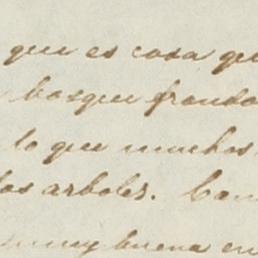 que es cosa que
bosque frondo
lo que muchos
los arboles. Com
muy buena en